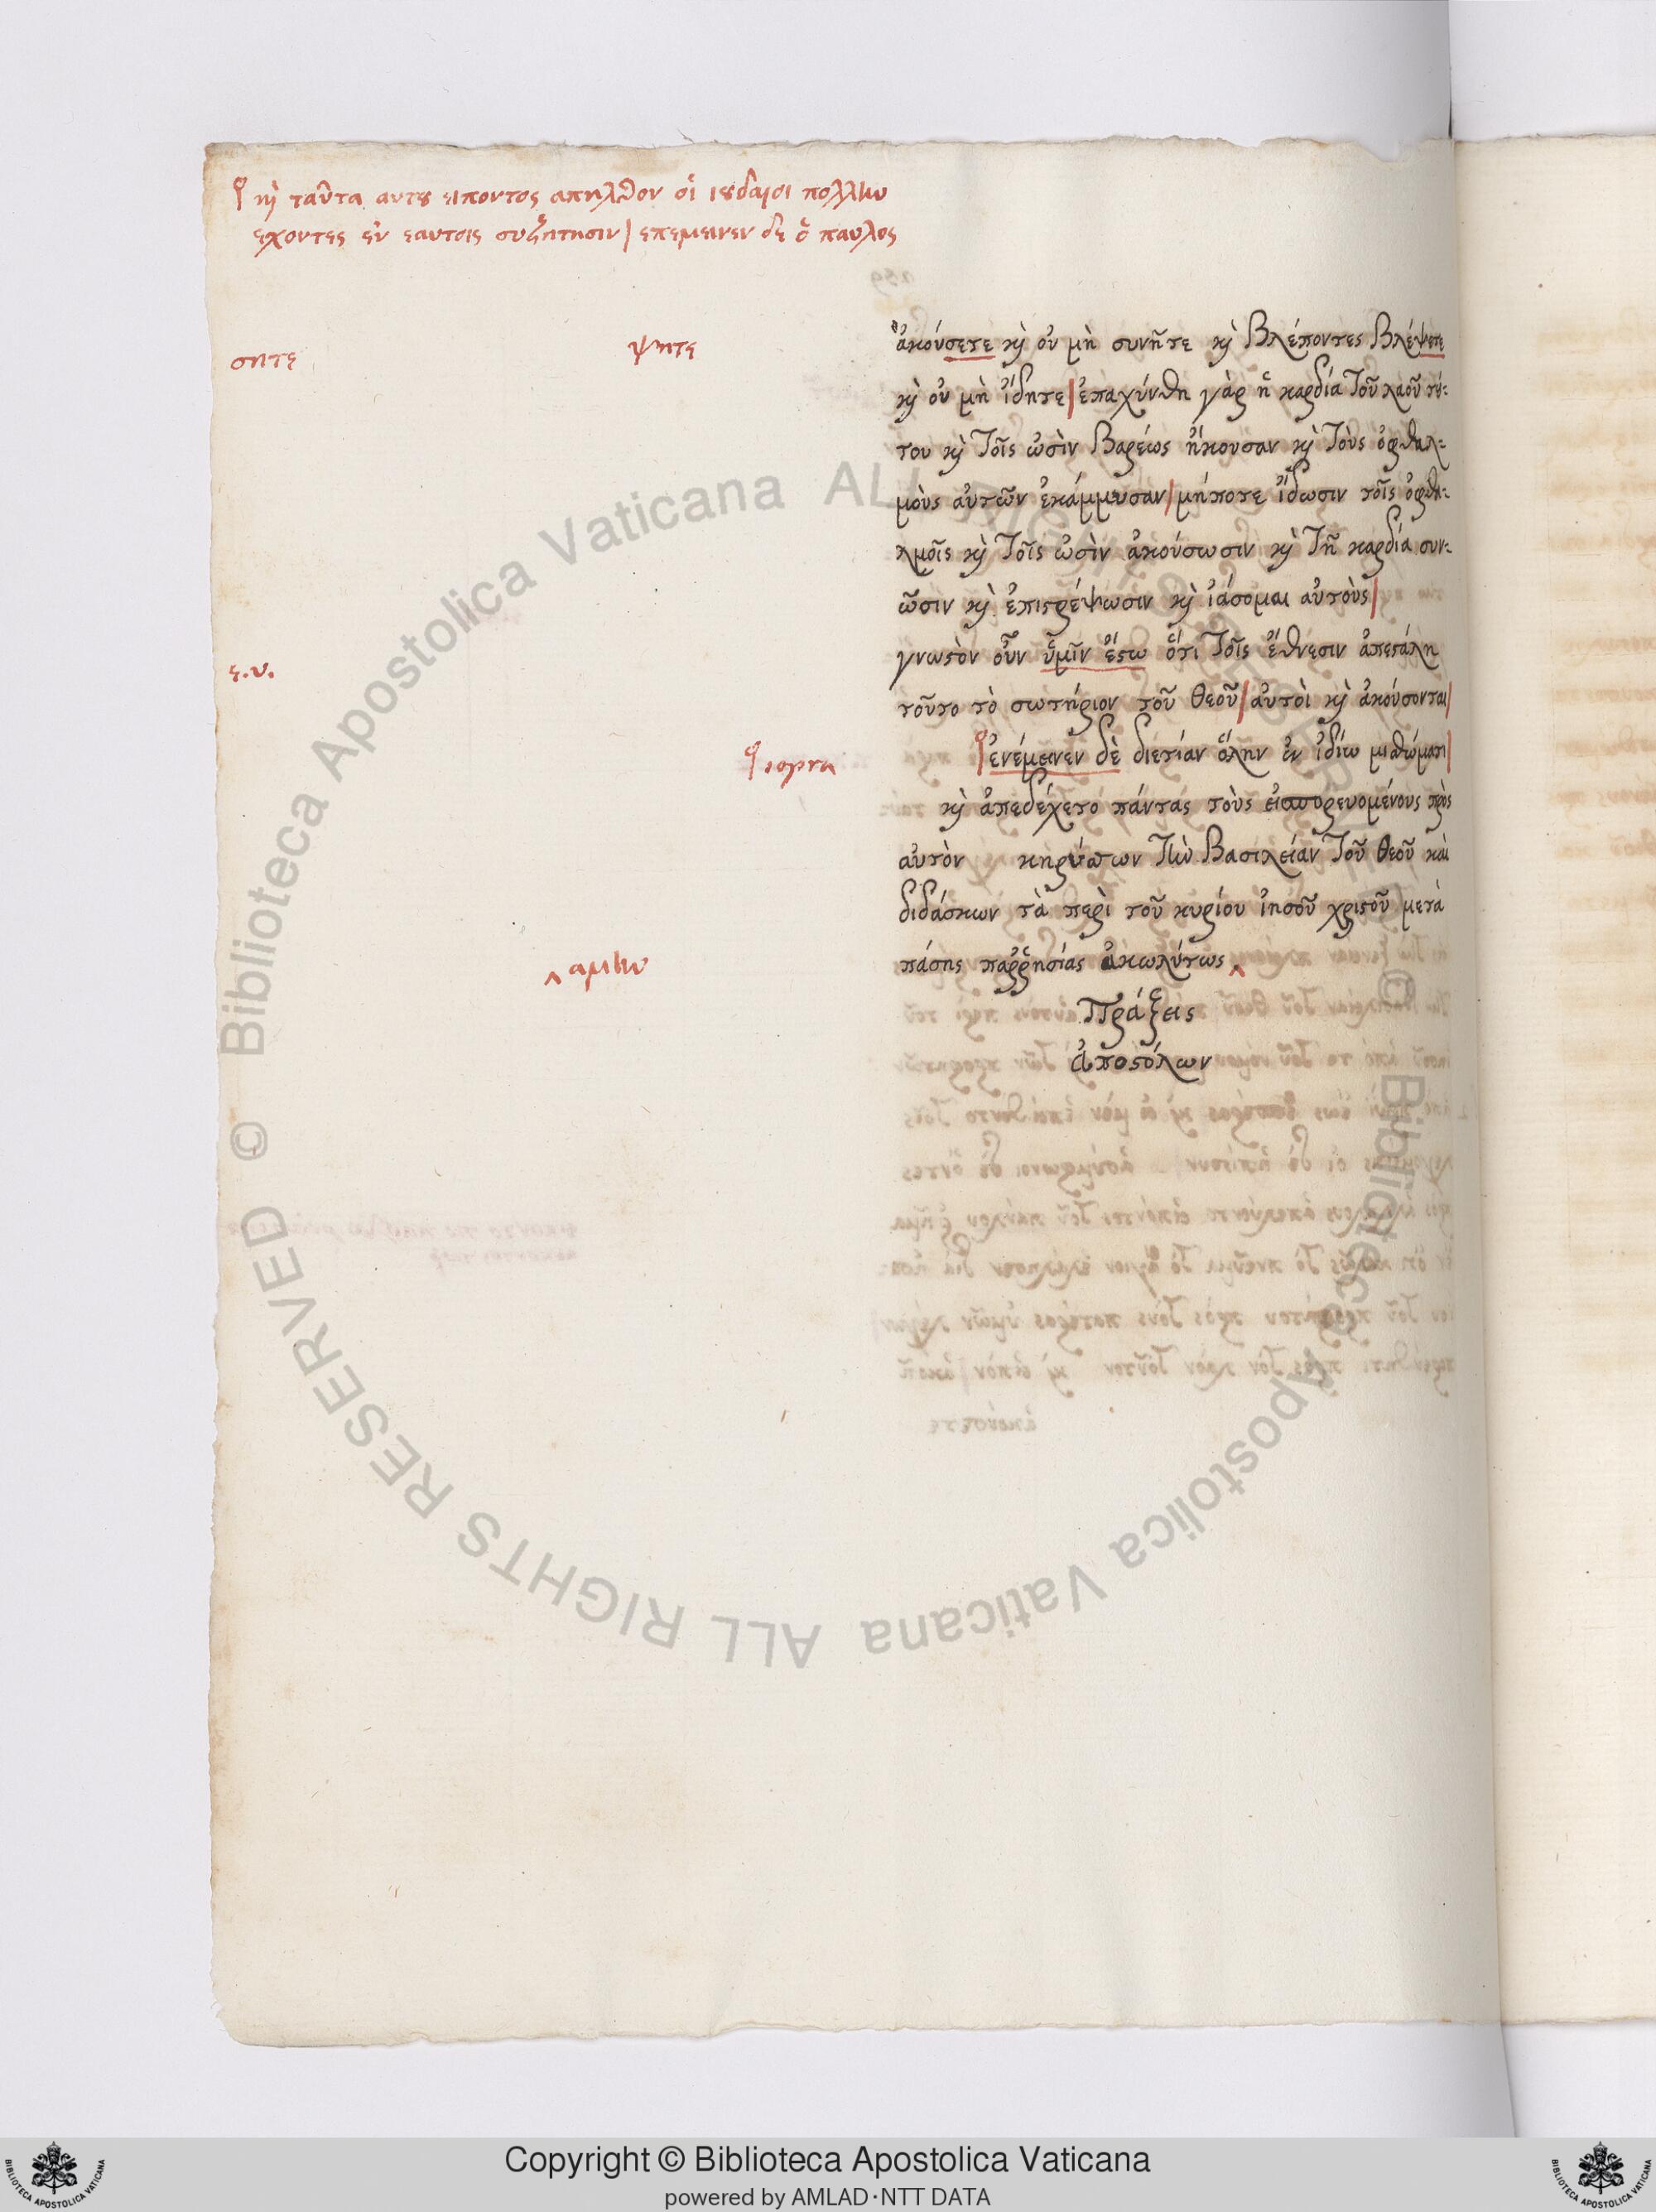 κὶ ταῦτα αυτȣ ειποντος απηλθον οἱ ιȣδαῖοι πολλὴν
εχοντες εν εαυτοις συζήτησιν | επεμεινεν δε ὁ παυλος
σητε
ψητε
ἀκούσετε κὶ οὐ μὴ συνῆτε κὶ βλέποντες βλέψετε
κὶ οὐ μὴ ἴδητε | ἐπαχύνθη γὰρ ἡ καρδία τοῦ λαοῦ τού-
του κὶ τοῖς ὠσὶν βαρέως ἤκουσαν κὶ τοὺς ὀφθαλ-
μοὺς αὐτῶν ἐκάμμυσαν | μήποτε ἴδωσιν τοῖς ὀφθα-
λμοῖς κὶ τοῖς ὠσὶν ἀκούσωσιν κὶ τῇ καρδία συν-
ῶσιν κὶ ἐπιϛρέψωσιν κὶ ἰάσομαι αὐτοὺς |
ε.υ.
γνωϛὸν οὖν ὑμῖν ἔϛω ὅτι τοῖς ἔθνεσιν ἀπεϛάλη
τοῦτο τὸ σωτήριον τοῦ θεοῦ | αὐτοὶ κὶ ἀκούσονται |
supra
ἐνέμεινεν δὲ διετίαν ὅλην ἐν ἰδίω μισθώματι |
κὶ ἀπεδέχετο πάντας τοὺς εἰσπορευομένους πρὸς
αὐτὸν κηρύσσων τὴν βασιλείαν τοῦ θεοῦ καὶ
διδάσκων τὰ περὶ τοῦ κυρίου ἰησοῦ χριϛοῦ μετὰ
πάσης παῤῥησίας ἀκωλύτως ‸
‸ αμὴν
Πράξεις
ἀποϛόλων
© Biblioteca Apostolica Vaticana ALL RIGHTS RESERVED
© Biblioteca Apostolica Vaticana ALL RIGHTS RESERVED
Copyright © Biblioteca Apostolica Vaticana
powered by AMLAD·NTT DATA
BIBLIOTECA APOSTOLICA VATICANA
BIBLIOTECA APOSTOLICA VATICANA